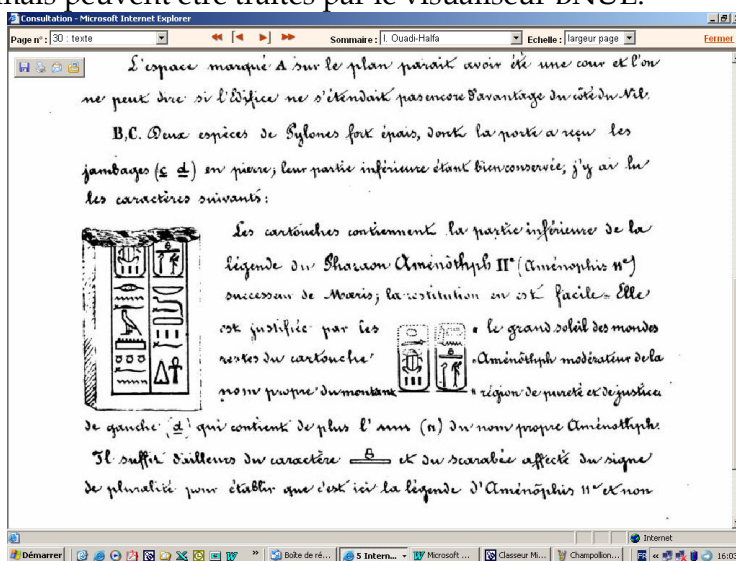 mais peuvent être traités par le visualiseur BNUE.
Consultation - Microsoft Internet Explorer
Page n° : 30 : texte Sommaire : I. Ouadi-Halfa Echelle : largeur page Fermer
L'espace marqué A sur le plan parait avoir été une cour et l'on
ne peut dire si l'Édifice ne s'étendait pas encore d'avantage du côté du Nil.
B,C. Deux espèces de Pylones fort épais, dont la porte a reçu les
jambages (c d) en pierre; leur partie inférieure étant bien conservée, j'y ai lu
les caractères suivants:
Les cartouches contiennent la partie inférieure de la
légende du Pharaon Aménothph IIe (Aménophis IIe)
successeur de Mœris; la restitution en est facile. Elle
est justifiée par les « le grand soleil des mondes
restes du cartouche « Aménôthph modérateur de la
nom propre du montant « région de pureté et de justice
de gauche (d) qui contient de plus l' (n) du nom propre Aménothph.
Il suffit d'ailleurs du caractère et du scarabée affecté du signe
de pluralité pour établir que c'est ici la légende d'Aménôphis IIe et non
Internet
Démarrer » Boîte de ré... 5 Intern... Microsoft ... Classeur Mi... Champollion... FR « 16:03